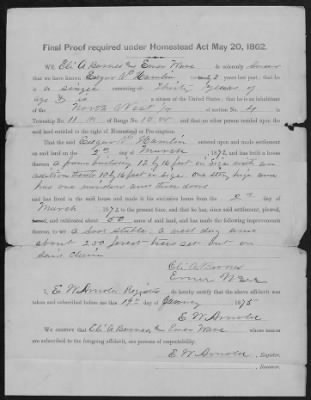 Final Proof required under Homestead Act May 20, 1862.
We, Eli A Barnes & Emer Ware do solemnly swear
that we have known Edgar W. Hamlin for years last past, that he
is a single consisting of Thirty years of
age & is a citizen of the United States; that he is an inhabitant
of the North West 1/4 of section No. 4 in
Township No. 11 N of Range No. 10 W and that no other person resided upon the
said land entitled to the right of Homestead or Pre-emption.
That the said Edgar W. Hamlin entered upon and made settlement
on said land on the 2nd day of March 1872 and has built a house
thereon a frame building 12 by 16 feet in size with an
addition thereto 10 by 16 feet in size one story high and
has one window and three doors
and has lived in the said house and made it his exclusive home from the 2nd day of
March 1872 to the present time, and that he has, since said settlement, plowed,
fenced, and cultivated about 50 acres of said land, and has made the following improvements
thereon, to wit: a sod stable, a well dug and
about 250 forest trees set out on
said claim
Eli A Barnes
Emer Ware
I, E W Arnold Register do hereby certify that the above affidavit was
taken and subscribed before me this 19th day of January 1875
E W Arnold
We certify that Eli A Barnes & Emer Ware whose names
are subscribed to the foregoing affidavit, are persons of respectability.
E W Arnold, Register.
Receiver.